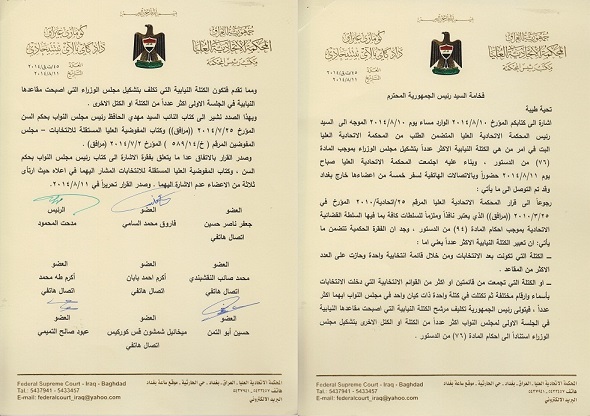 جمهورية العراق
المحكمة الاتحادية العليا
مكتب رئيس المحكمة
كوماري عيراق
التاريخ ٢٠١٤/٨/١١
فخامة السيد رئيس الجمهورية المحترم
تحية طيبة
اشارة الى كتابكم المؤرخ ٢٠١٤/٨/١٠ الوارد مساء يوم ٢٠١٤/٨/١٠ الموجه الى السيد
رئيس المحكمة الاتحادية العليا المتضمن الطلب من المحكمة الاتحادية العليا
البت في امر من هي الكتلة النيابية الاكثر عدداً بتشكيل مجلس الوزراء بموجب المادة
(٧٦) من الدستور . وبناء عليه اجتمعت المحكمة الاتحادية العليا صباح
يوم ٢٠١٤/٨/١١ حضورياً وبالاتصالات الهاتفية لسفر خمسة من اعضاءها خارج بغداد
وقد تم التوصل الى ما يأتي :
رجوعاً الى قرار المحكمة الاتحادية العليا المرقم ٢٥/اتحادية/٢٠١٠ المؤرخ في
٢٠١٠/٣/٢٥ ((مرافق)) الذي يعتبر نافذاً وملزماً للسلطات كافة بما فيها السلطة القضائية
الاتحادية بموجب احكام المادة (٩٤) من الدستور ، وجد ان الفقرة الحكمية تتضمن ما
يأتي: ان تعبير الكتلة النيابية الاكثر عدداً يعني اما :
ــ الكتلة التي تكونت بعد الانتخابات ومن خلال قائمة انتخابية واحدة وحازت على العدد
الاكثر من المقاعد .
ــ او الكتلة التي تجمعت من قائمتين او اكثر من القوائم الانتخابية التي دخلت الانتخابات
بأسماء وارقام مختلفة ثم تكتلت في كتلة واحدة ذات كيان واحد في مجلس النواب ايهما اكثر
عدداً ، فيتولى رئيس الجمهورية تكليف مرشح الكتلة النيابية التي اصبحت مقاعدها النيابية
في الجلسة الاولى لمجلس النواب اكثر عدداً من الكتلة او الكتل الاخرى بتشكيل مجلس
الوزراء استناداً الى احكام المادة (٧٦) من الدستور .
المحكمة الاتحادية العليا ـ العراق ـ بغداد
Federal Supreme Court - Iraq - Baghdad
Tel.: 5437941 - 5433457
E-mail: federalcourt_iraq@yahoo.com
البريد الالكتروني
جمهورية العراق
المحكمة الاتحادية العليا
مكتب رئيس المحكمة
كوماري عيراق
التاريخ ٢٠١٤/٨/١١
ومما تقدم فتكون الكتلة النيابية التي تكلف بتشكيل مجلس الوزراء التي اصبحت مقاعدها
النيابية في الجلسة الاولى اكثر عدداً من الكتلة او الكتل الاخرى .
وبهذا الصدد نشير الى كتاب النائب السيد مهدي الحافظ رئيس مجلس النواب بحكم السن
المؤرخ ٢٠١٤/٧/٢٥ ((مرافق)) وكتاب المفوضية العليا المستقلة للانتخابات – مجلس
المفوضين المرقم (خ/٥٨٩/١٤) المؤرخ ٢٠١٤/٧/٢ ((مرافق)) .
وصدر القرار بالاتفاق عدا ما يتعلق بفقرة الاشارة الى كتاب رئيس مجلس النواب بحكم
السن ، وكتاب المفوضية العليا المستقلة للانتخابات المشار اليهما في اعلاه حيث ارتأى
ثلاثة من الاعضاء عدم الاشارة اليهما . وصدر القرار تحريراً في ٢٠١٤/٨/١١.
الرئيس
مدحت المحمود
العضو
فاروق محمد السامي
العضو
جعفر ناصر حسين
اتصال هاتفي
العضو
اكرم طه محمد
اتصال هاتفي
العضو
اكرم احمد بابان
اتصال هاتفي
العضو
محمد صائب النقشبندي
اتصال هاتفي
العضو
عبود صالح التميمي
العضو
ميخائيل شمشون قس كوركيس
اتصال هاتفي
العضو
حسين أبو التمن
المحكمة الاتحادية العليا ـ العراق ـ بغداد
Federal Supreme Court - Iraq - Baghdad
Tel.: 5437941 - 5433457
E-mail: federalcourt_iraq@yahoo.com
البريد الالكتروني